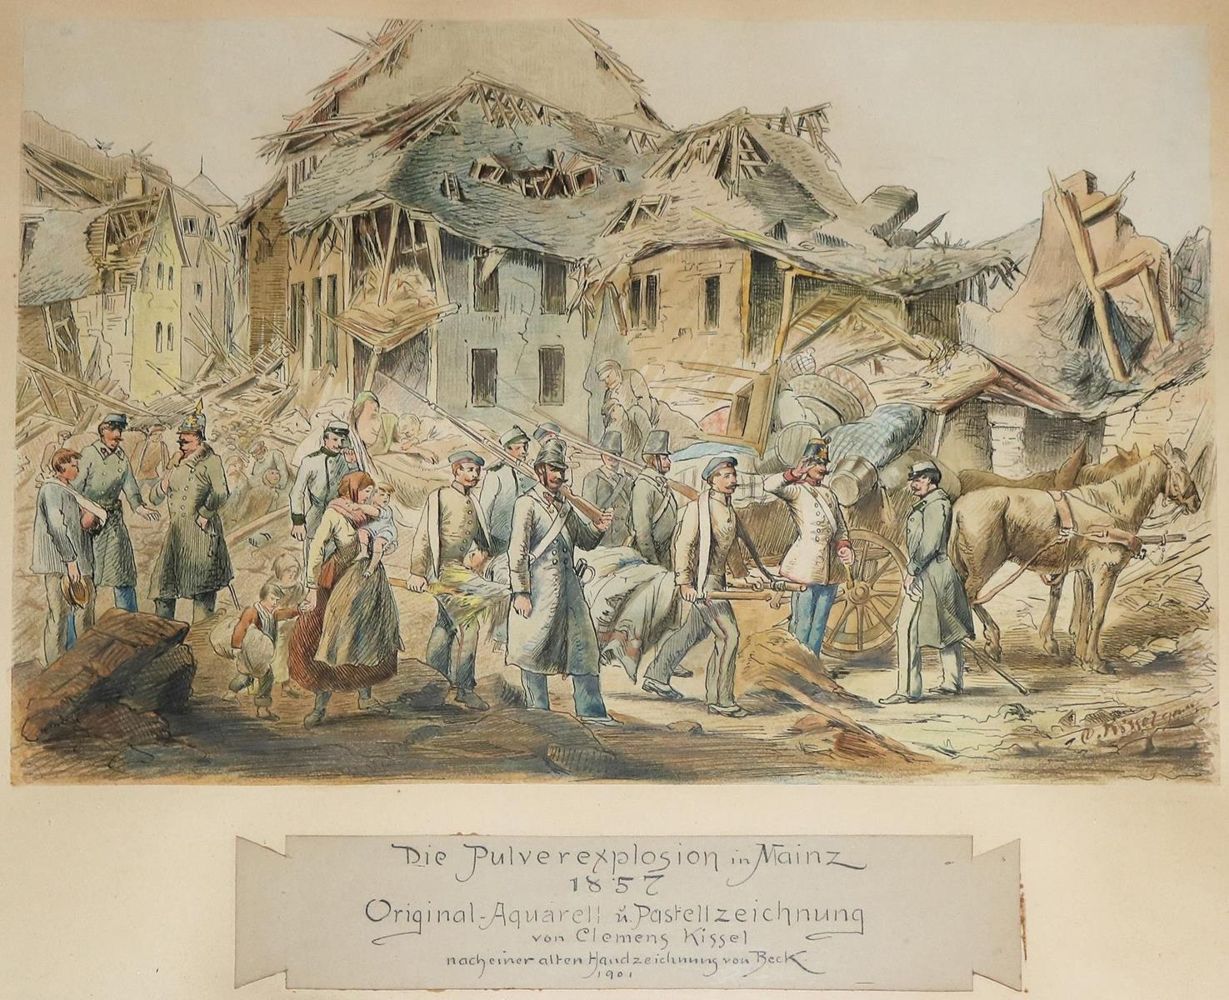 C. Kissel
Die Pulverexplosion in Mainz
1857
Original-Aquarell u. Pastellzeichnung
von Clemens Kissel
nach einer alten Handzeichnung von Beck
1901